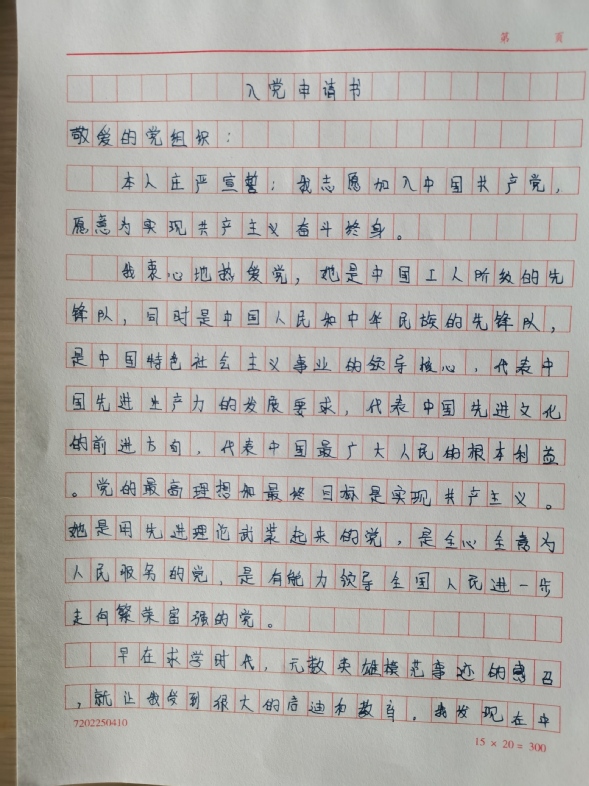 第 页
入党申请书
敬爱的党组织:
本人庄严宣誓:我志愿加入中国共产党,
愿意为实现共产主义奋斗终身。
我衷心地热爱党,她是中国工人阶级的先
锋队,同时是中国人民和中华民族的先锋队,
是中国特色社会主义事业的领导核心,代表中
国先进生产力的发展要求,代表中国先进文化
的前进方向,代表中国最广大人民的根本利益
。党的最高理想和最终目标是实现共产主义。
她是用先进理论武装起来的党,是全心全意为
人民服务的党,是有能力领导全国人民进一步
走向繁荣富强的党。
早在求学时代,无数英雄模范事迹的感召
,就让我受到很大的启迪和教育。我发现在中
7202250410
15 × 20 = 300